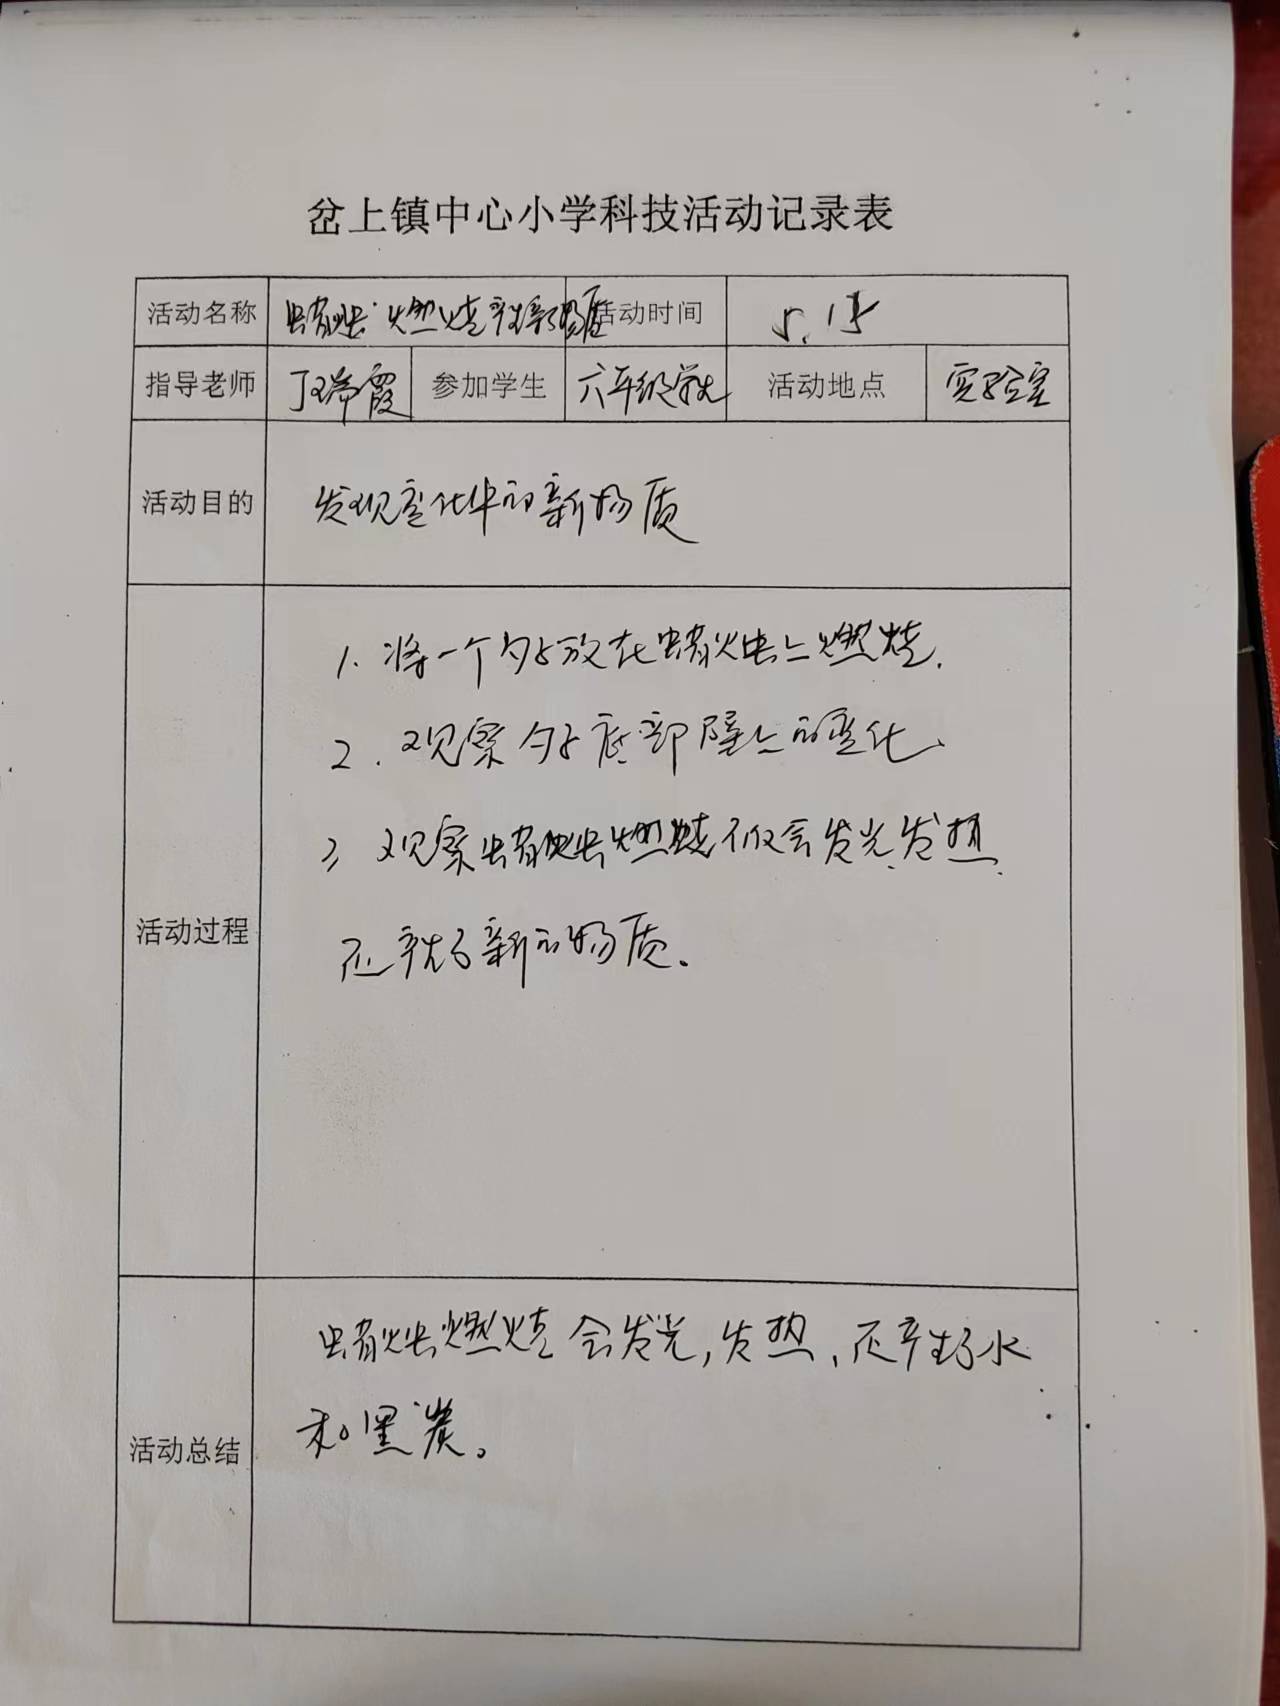 岔上镇中心小学科技活动记录表
活动名称 蜡烛燃烧产生新物质 活动时间 5.15
指导老师 丁瑞霞 参加学生 六年级学生 活动地点 实验室
活动目的 发现变化中的新物质
活动过程
1、将一个勺子放在蜡烛上燃烧.
2、观察勺子底部壁上的变化、
3、观察蜡烛燃烧不仅会发光、发热、
还产生了新的物质。
活动总结
蜡烛燃烧会发光,发热、还产生了水
和黑炭。